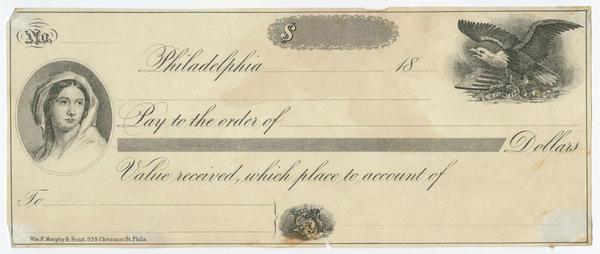 No.
$
Philadelphia 18
Pay to the order of
Dollars
Value received, which place to account of
To
Wm. F. Murphy & Sons. 339 Chestnut St. Phila.